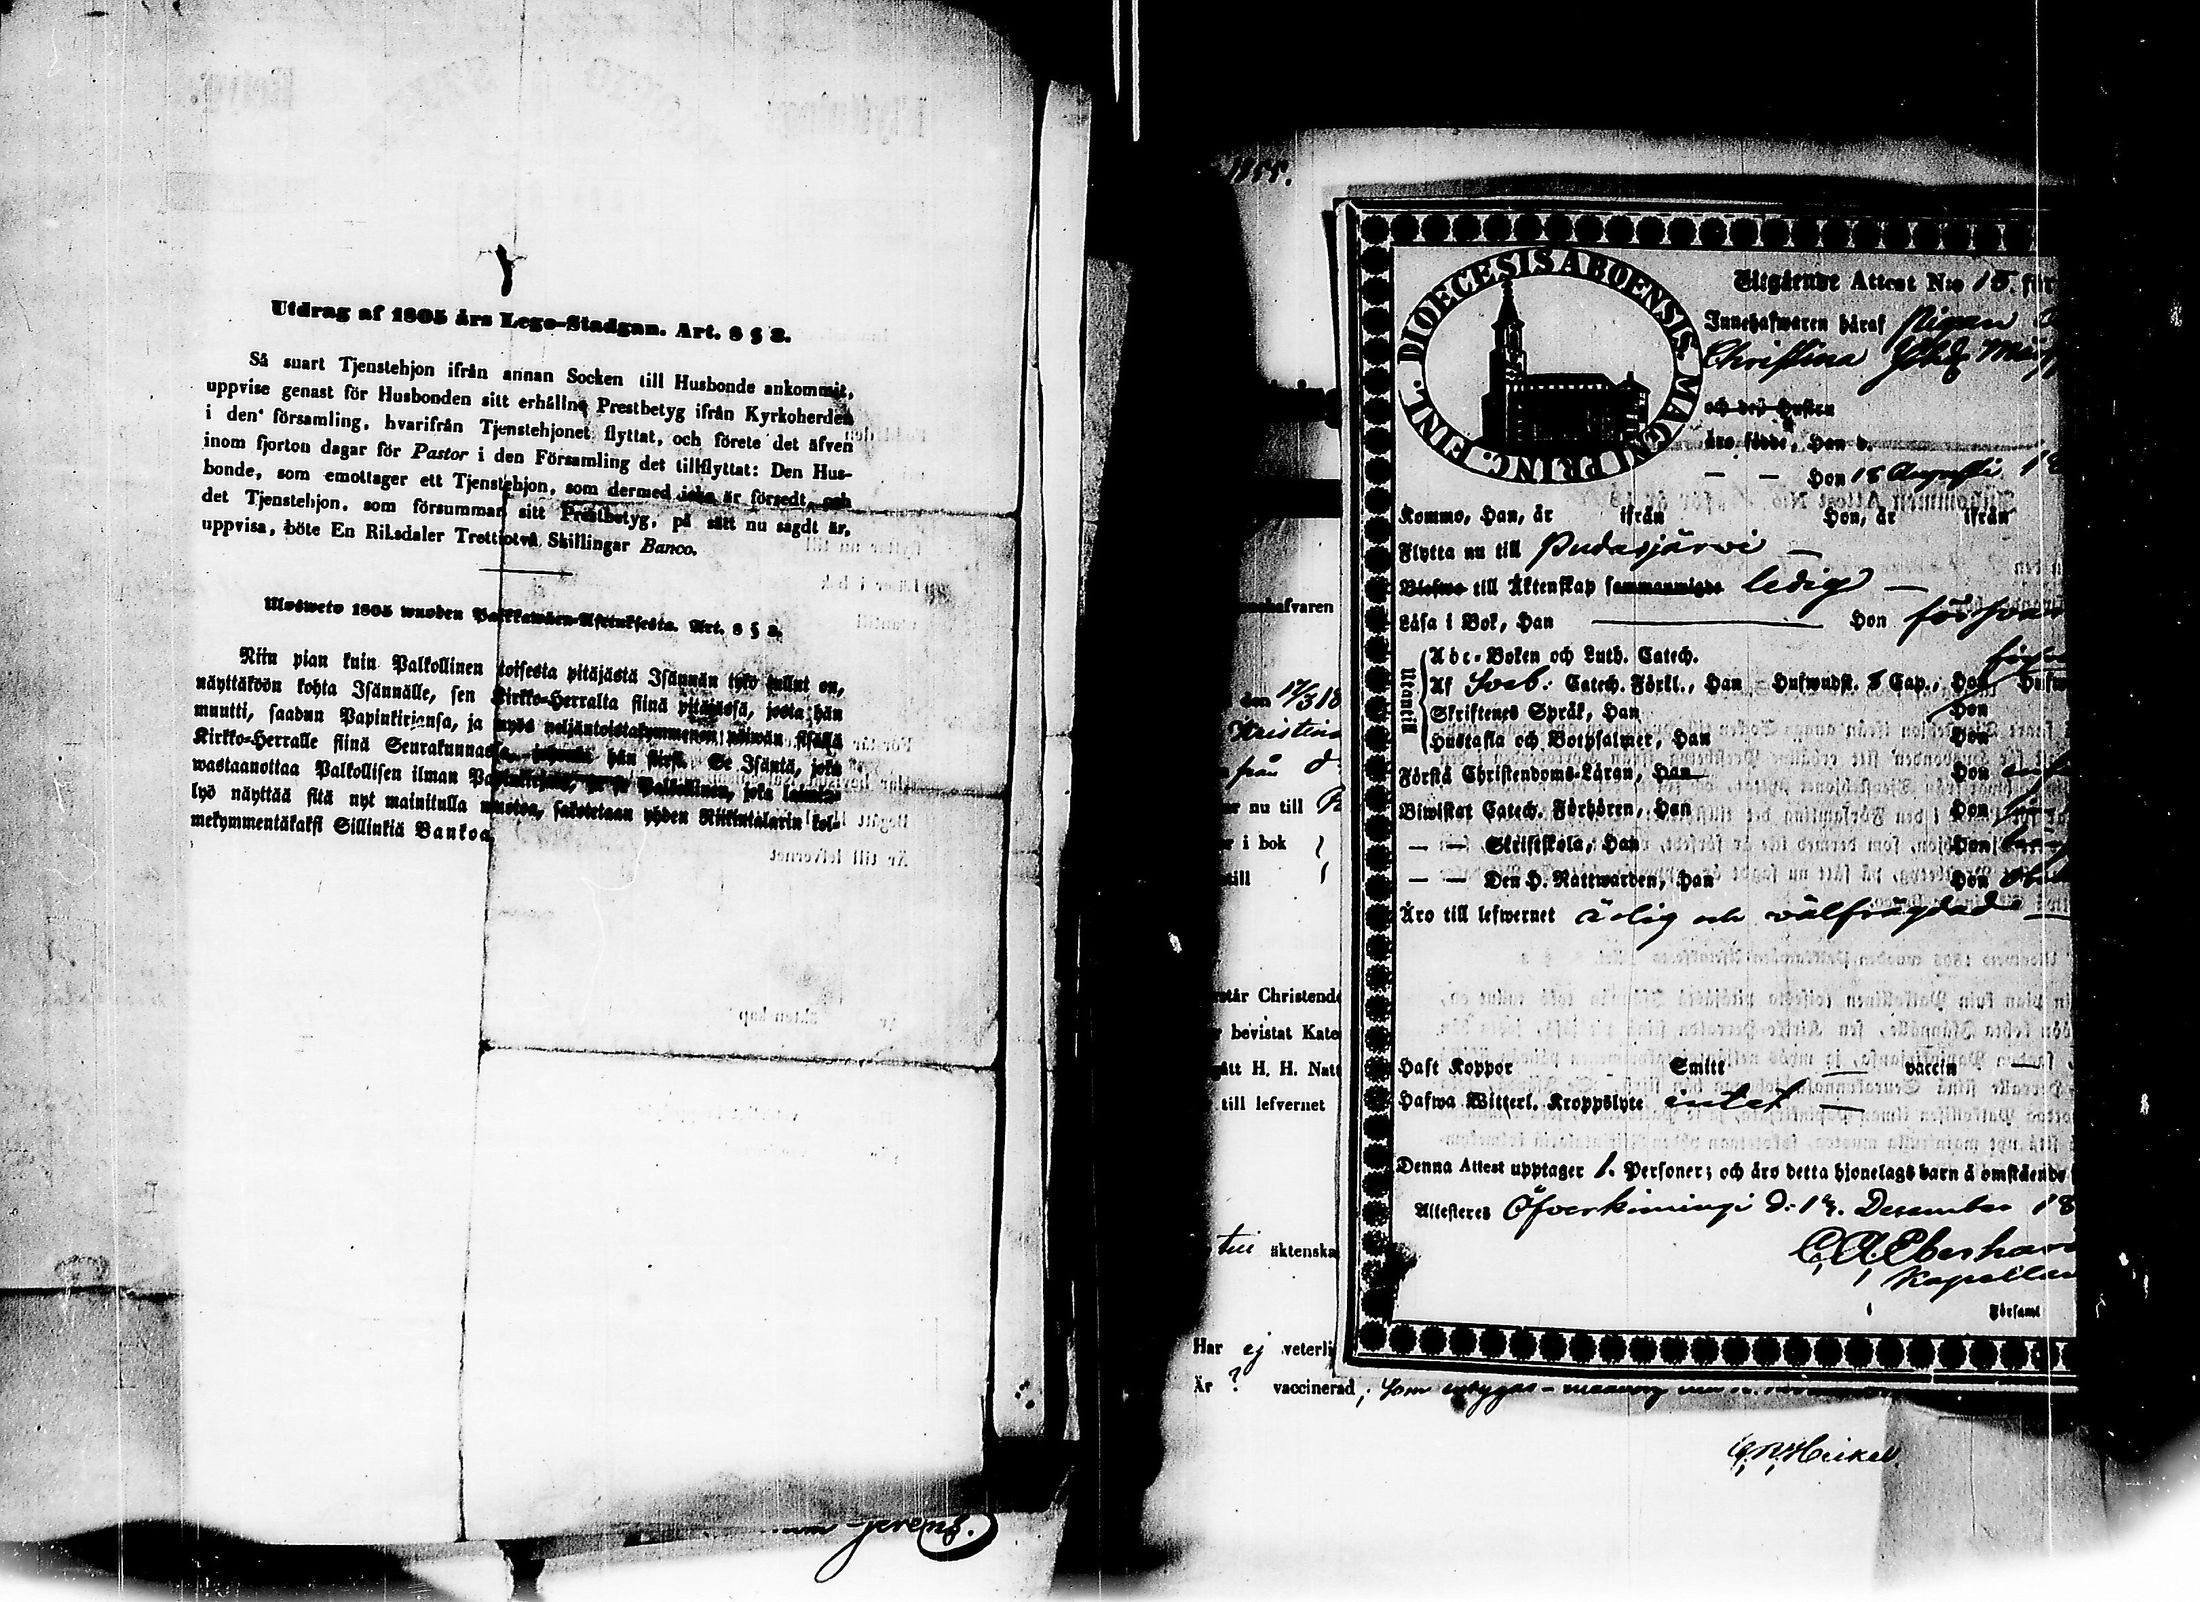 Utdrag af 1805 års Lego-Stadgan. Art. 8 § 2.
Så snart Tjenstehjon ifrån annan Socken till Husbonde ankommit,
uppvise genast för Husbonden sitt erhållne Prestbetyg ifrån Kyrkoherden
i den församling, hvarifrån Tjenstehjonet flyttat, och förete det äfven
inom fjorton dagar för Pastor i den Församling det tillflyttat: Den Hus-
bonde, som emottager ett Tjenstehjon, som dermed icke är försedt, och
det Tjenstehjon, som försummar sitt Prestbetyg, på sätt nu sagdt är,
uppvisa, böte En Riksdaler Trettiotvå Skillingar Banco.
Ulosweto 1805 wuoden Palkkawäen-Asetuksesta. Art. 8 § 2.
Niin pian kuin Palkollinen toisesta pitäjästä Isännän tykö tullut on,
näyttäköön kohta Isännälle, sen Kirkko-Herralta siinä pitäjässä, josta hän
muutti, saadun Papinkirjansa, ja myös neljäntoistakymmenen päiwän sisällä
Kirkko-Herralle siinä Seurakunnassa, hän siirsi. Se Isäntä, joka
wastaanottaa Palkollisen ilman Papinkirjata, ja se Palkollinen, joka laimin-
lyö näyttää sitä nyt mainitulla muotoa, sakotetaan yhden Riikintalarin kol-
mekymmentäkaksi Sillinkiä Bankoa
DIOECESIS ABOENSIS. MAGNI PRINC. FINL.
Utgående Attest N:o 15. för
Innehafwaren häraf Pigan
Christina
och des Hustru
äro födde, Han d.
— — Hon 18 Augusti 18
Kommo, Han, år ifrån Hon, år ifrån
Flytta nu till Pudasjärvi —
Blefwo till Äktenskap sammanwigde ledig —
Läsa i Bok, Han — Hon försvar
Utantill
Abc-Boken och Luth. Catech.
Af Sveb: Catech. Förkl., Han - Hufwudst. 8 Cap., Hon Hufw
Skriftenes Språk, Han Hon
Hustafla och Botpsalmer, Han Hon
Förstå Christendoms-Läran, Han Hon
Biwistat Catech. Förhören, Han Hon
— — Skriftskola, Han Hon
— — Den H. Nattwarden, Han Hon
Äro till lefwernet ärlig och välfrägdad —
Haft Koppor Smitt — vaccin —
Hafwa Witterl. Kroppslyte intet —
Denna Attest upptager 1. Personer; och äro detta hjonelags barn å omstående
Attesteres Öfverkiminge d. 17. December 18
C. A. Eberhar
Kapellan
i Församl
nehafvaren
den 17/3 18
Kristina
från d
r nu till
r i bok
till
står Christendo
r bevistat Kate
gått H. H. Natt
till lefvernet
äktenska
Har ej veterli
Är ? vaccinerad, som
Heikel